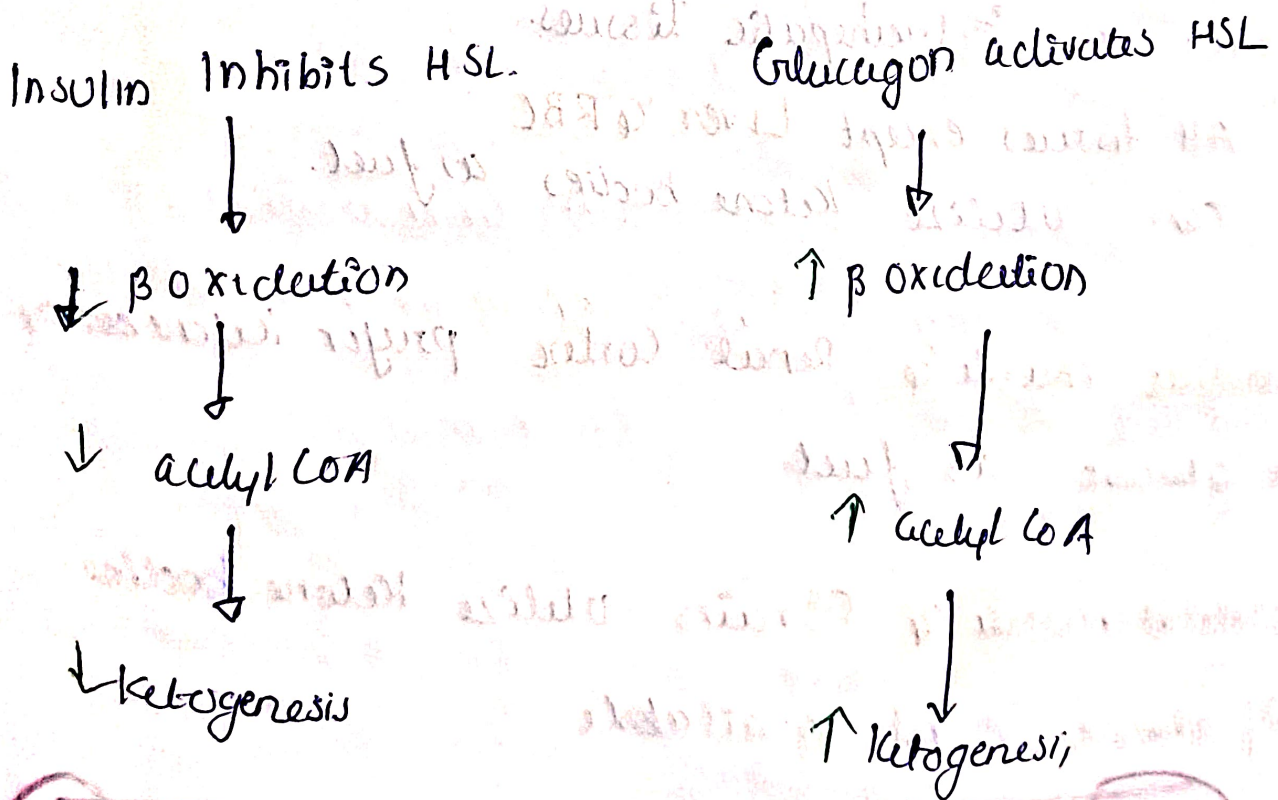 Insulin Inhibits HSL.
↓
↓ β oxidation
↓
↓ acetyl COA
↓
↓ Ketogenesis
Glucagon activates HSL
↓
↑ β oxidation
↓
↑ acetyl CoA
↓
↑ Ketogenesis